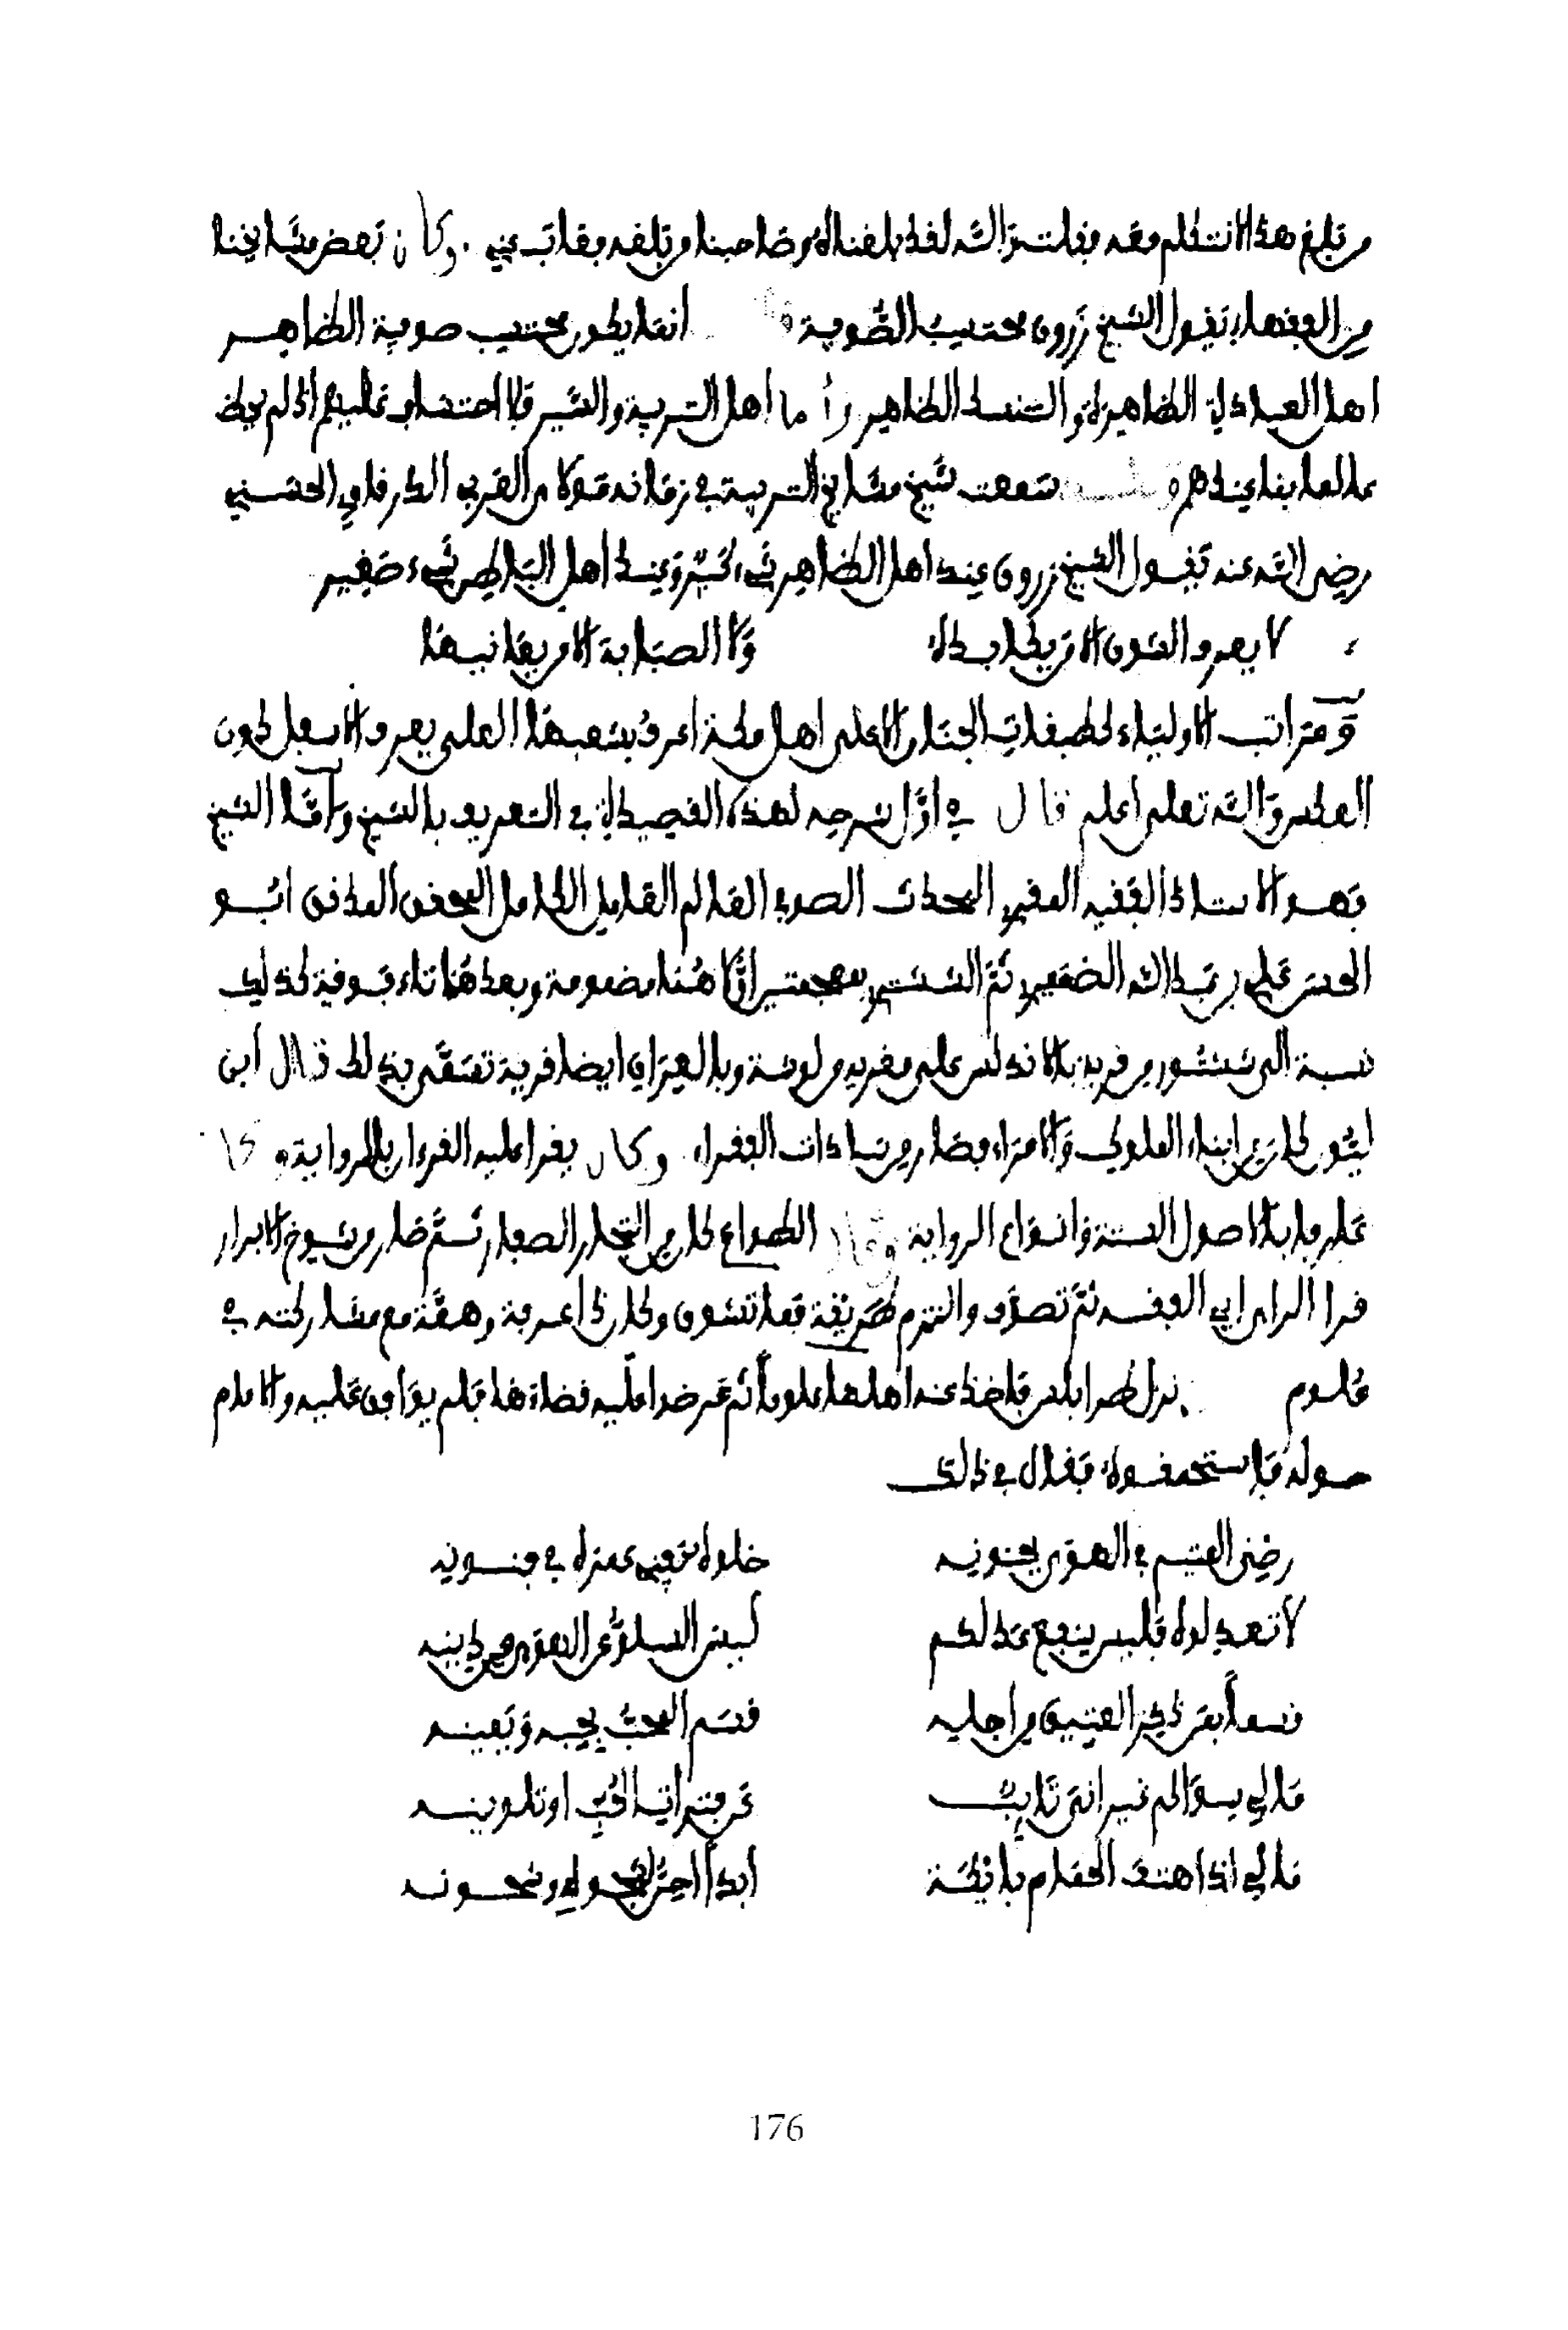 من بلغ هذا لا نتكلم معه فقلت والله لقد بلغناه وصاحبنا من بلغه فغاب عني وكان بعض مشايخنا
من الفقهاء يقول الشيخ زروق محتسب الصوفية انما يكون محتسب صوفية الظاهر
اهل العبادة الظاهرة والتنسك الظاهر واما اهل التربية والسير فلا احتساب عليهم اذ لم يحط
علما بما عندهم سمعت شيخ مشايخ التربية في زمانه مولاي العربي الدرقاوي الحسني
رضي الله عنه يقول الشيخ زروق عند اهل الظاهر شيء كبير وعند اهل الباطن شيء صغير
لا يعرف الشوق الا من يكابده ولا الصبابة الا من يعانيها
ومراتب الاولياء كطبقات الجنان الاعلى اهل مكة اعرف بشعبها العلى يعرف الاسفل دون
العكس والله تعلى اعلم قال في اول شرحه لهذه القصيدة في التعريف بالشيخ واما الشيخ
فهو الاستاذ الفقيه المقرئ المحدث الصوفي العالم العامل الكامل المحقق المدقق ابو
الحسن علي بن عبد الله النميري ثم الششتري بمعجمتين اولاهما مضمومة وبعدهما تاء فوقية كذلك
نسبة الى ششتر من قرية بالاندلس على مقربة من لوشة وبالعراق ايضا قرية تسمى بذلك قال ابن
ليون كان من ابناء الملوك والامراء فصار من سادات الفقراء وكان يقرا عليه القرءان بالرواية وكا
عارفا بالاصول السنة وانواع الرواية وقال الطواح كان من التجار الصغار ثم صار من شيوخ الابرار
قرا القراءان والفقه ثم تصوف والتزم طريقة فما تشوق وكان ذا معرفة وهمة مع مشاركته في
علوم نزل طرابلس فاخذ عنه اهلها علوما ثم عرضوا عليه قضاءها فلم يوافق عليه والا دام
حوله فاستحمقوه فقال في ذلك
رضي المتيم في الهوى بجنونه خلوه يفني عمره في فنونه
لا تعذلوه فليس ينفع عذلكم ليس السلو عن الهوى من دينه
قسما بمن ذكر العقيق من اجله قسم المحب بحبه ويمينه
ما لي سواكم غير اني تائب عن فترات الحب او تلوينه
ما لي اذا هتف الحمام بايكة ابدا احن لشجوه وشجونه
176